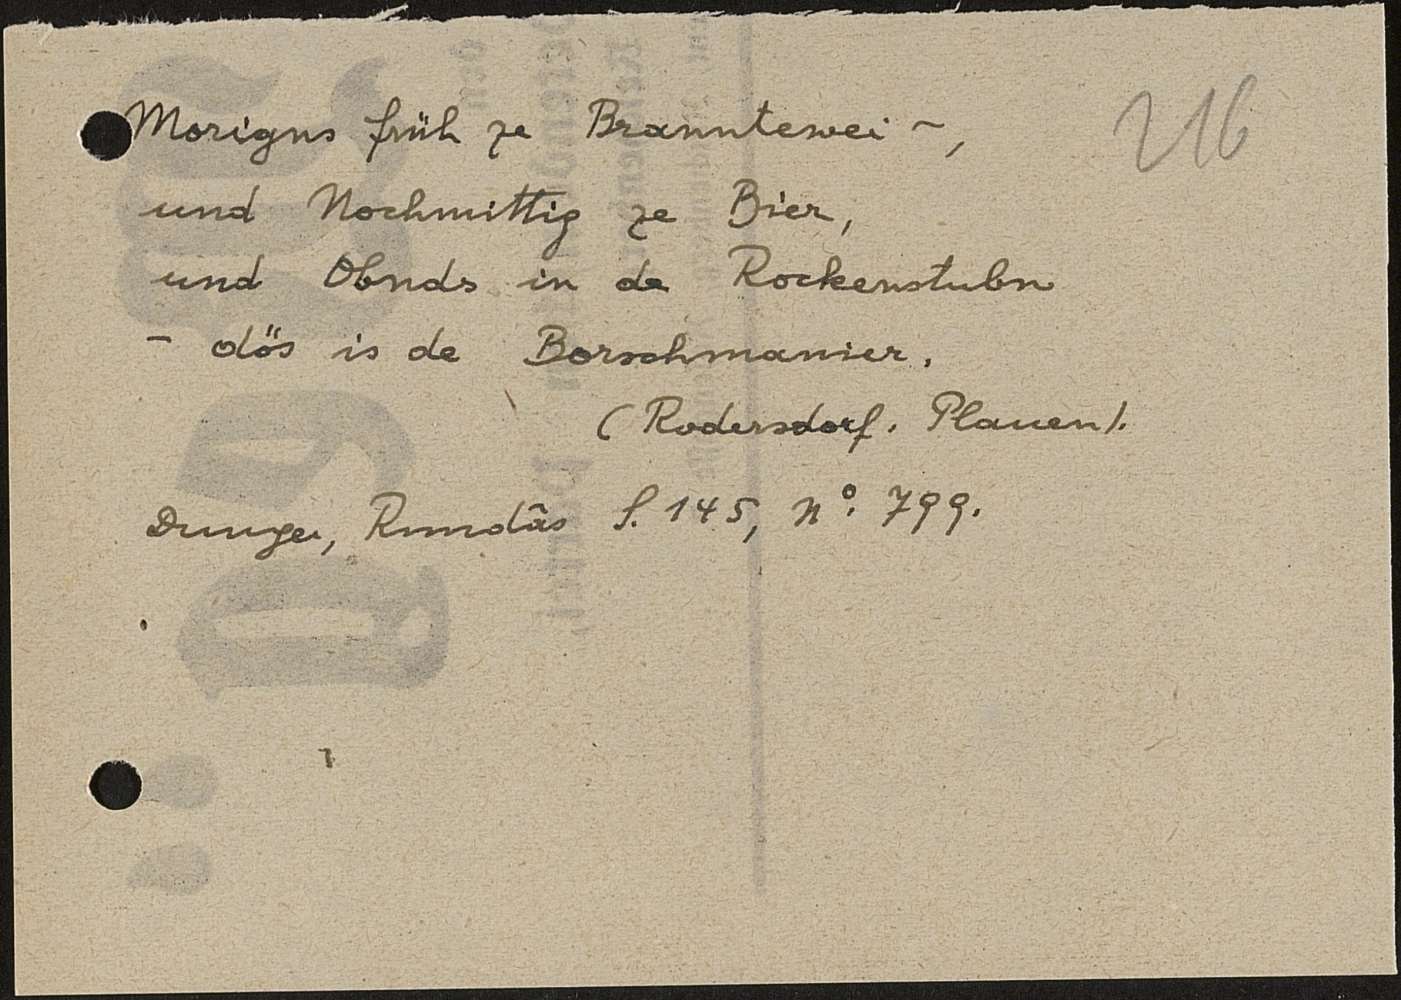 216
Morigns früh ze Branntewei -,
und Nochmittig ze Bier,
und Obnds in de Rockenstubn
- dös is de Borschmanier.
(Rodersdorf. Plauen).
Dunger, Rundâs S. 145, No. 799.